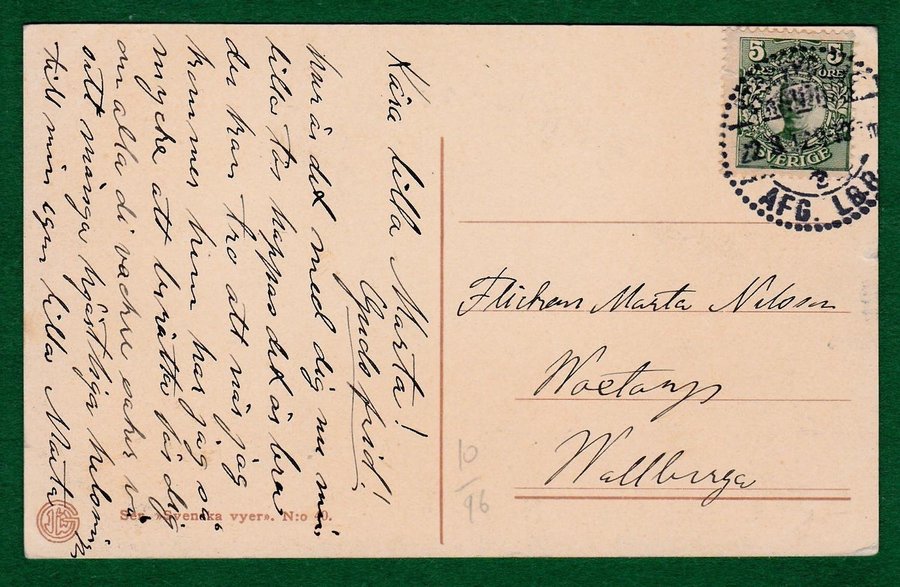 Kära lilla Marta!
Guds frid!
hur är det med dig nu min
lilla tös hoppas det är bra
der kan tro att när jag
kommer hem har jag så
mycke att berätta för dig
om alla di vackra saker
ett många hjärtliga
till min egen lilla Marta
Ser. »Svenska vyer». N:o
5 5
ÖRE
SVERIGE
AFG. L8B
Flickan Marta Nilsson
Wallberga
10
96